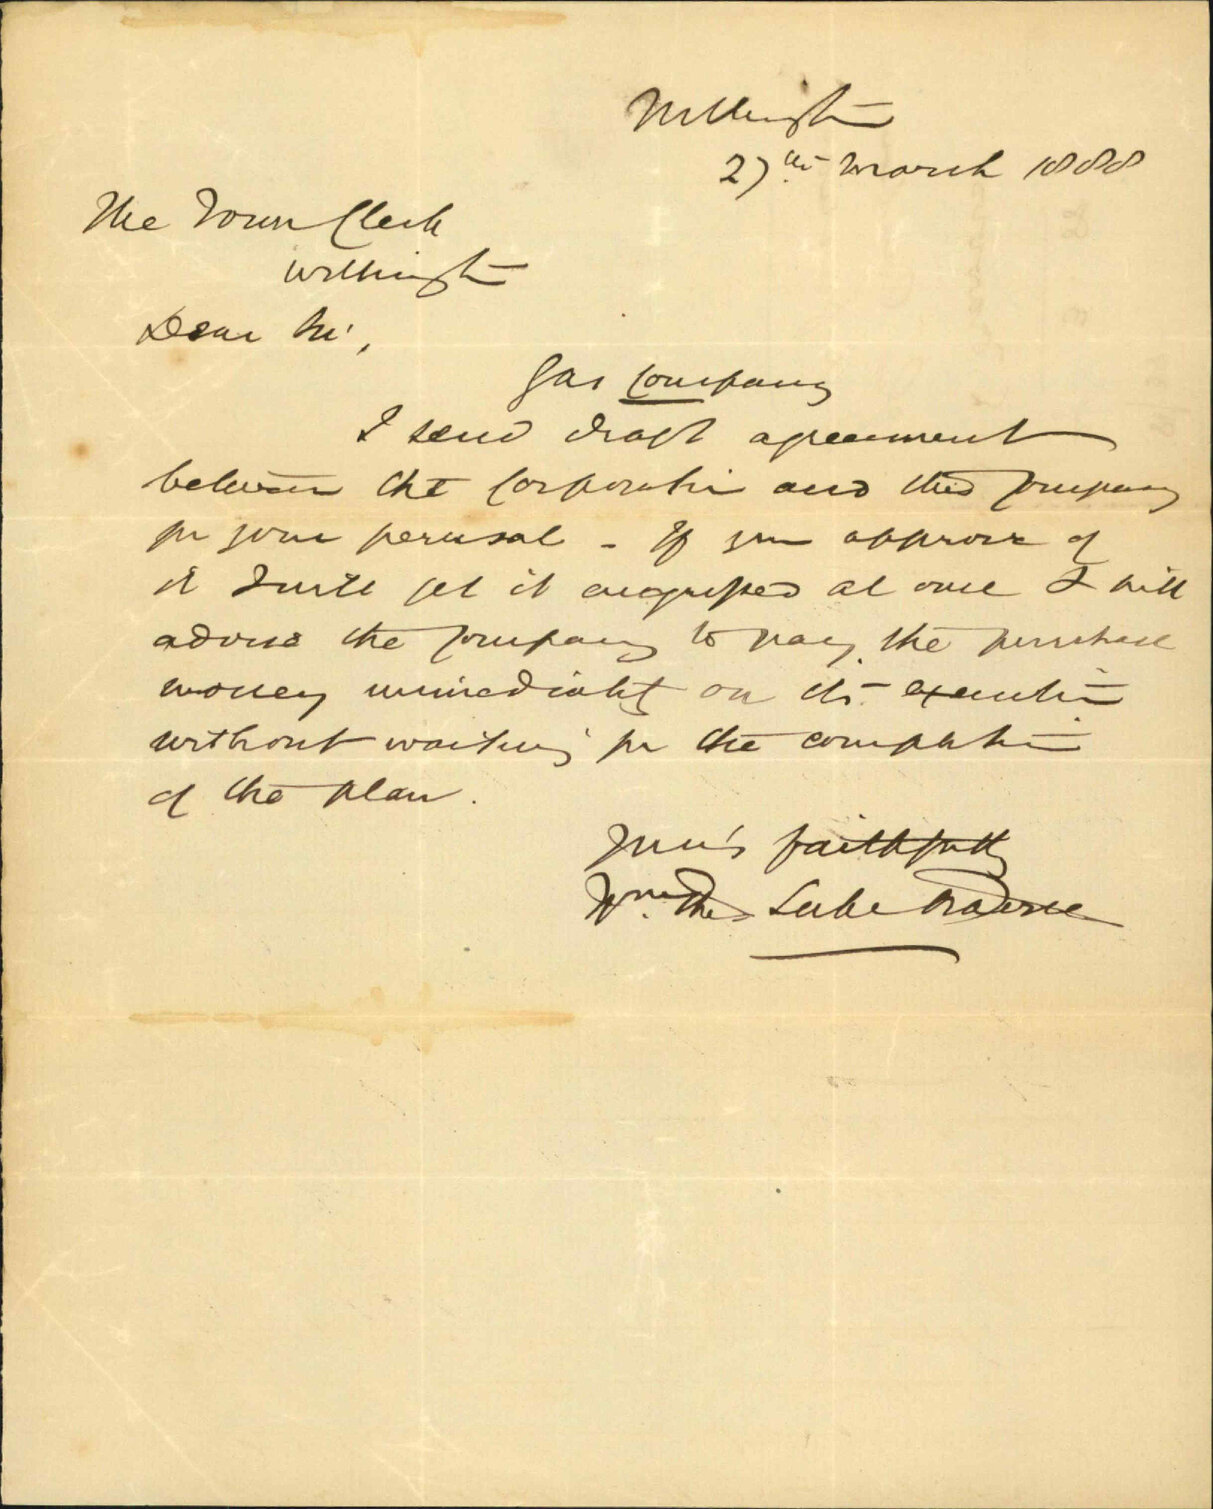 Wellington
27th March 1888
The Town Clerk
Wellington
Dear Sir,
Gas Company
I send draft agreement
between the Corporation and this Company
for your perusal - If you approve of
it I will get it engrossed at once I will
advise the Company to pay the purchase
money immediately on its execution
without waiting for the completion
of the plan.
Yours faithfully
Wm. Thos Locke Travers